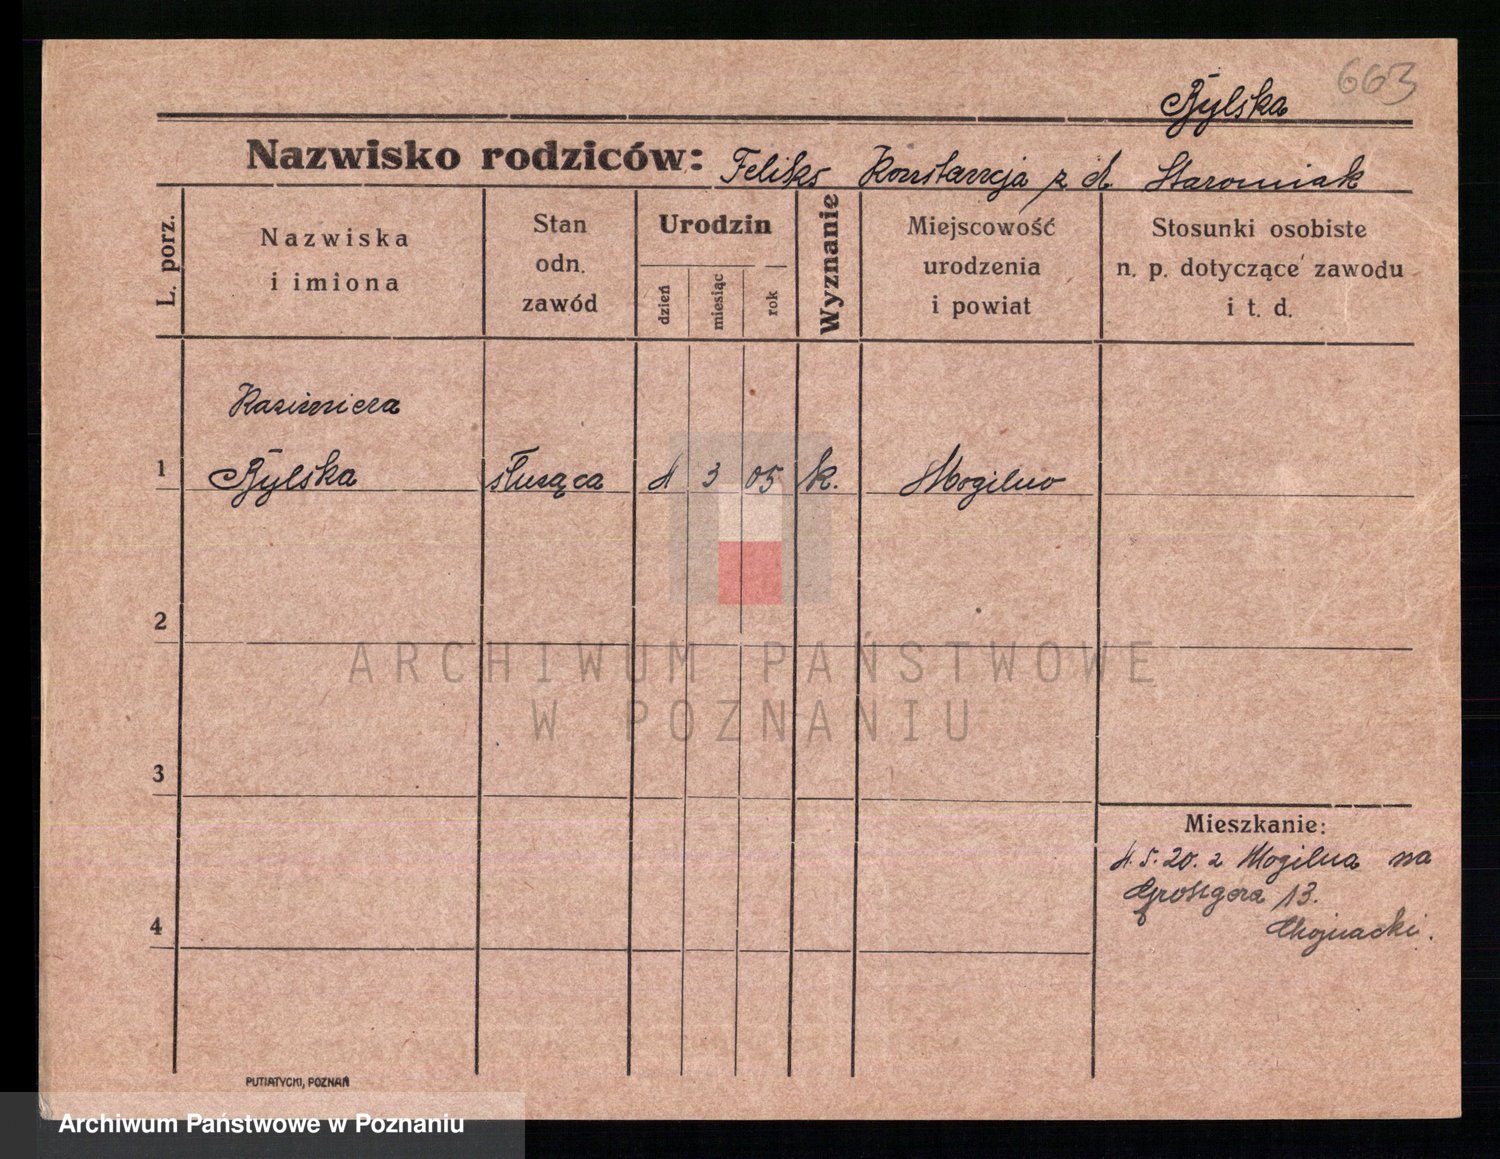 663
Bylska
Nazwisko rodziców: Feliks Konstancja z d. Staromiak
L. porz.
Nazwiska
i imiona
Stan
odn.
zawód
Urodzin
dzień
miesiąc
rok
Wyznanie
Miejscowość
urodzenia
i powiat
Stosunki osobiste
n. p. dotyczące zawodu
i t. d.
Kazimiera
1 Bylska służąca 4 3 05 k. Mogilno
2
3
4
Mieszkanie:
4.5.20. z Mogilna na
13.
Chojnacki.
PUTIATYCKI, POZNAŃ
ARCHIWUM PAŃSTWOWE
W POZNANIU
Archiwum Państwowe w Poznaniu